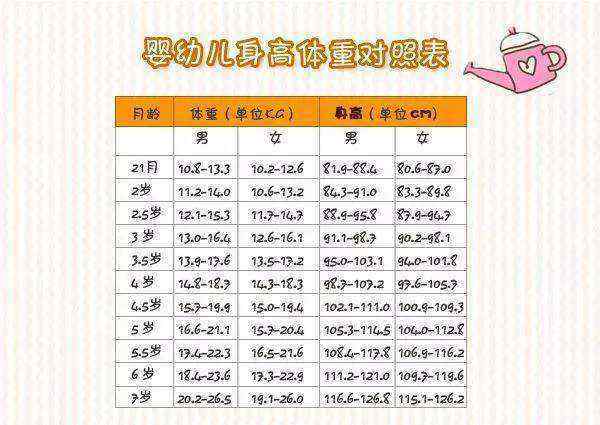 婴幼儿身高体重对照表
月龄 体重(单位KG) 身高(单位cm)
男 女 男 女
21月 10.8-13.3 10.2-12.6 81.9-88.4 80.6-87.0
2岁 11.2-14.0 10.6-13.2 84.3-91.0 83.3-89.8
2.5岁 12.1-15.3 11.7-14.7 88.9-95.8 87.9-94.7
3岁 13.0-16.4 12.6-16.1 91.1-98.7 90.2-98.1
3.5岁 13.9-17.6 13.5-17.2 95.0-103.1 94.0-101.8
4岁 14.8-18.7 14.3-18.3 98.7-107.2 97.6-105.7
4.5岁 15.7-19.9 15.0-19.4 102.1-111.0 100.9-109.3
5岁 16.6-21.1 15.7-20.4 105.3-114.5 104.0-112.8
5.5岁 17.4-22.3 16.5-21.6 108.4-117.8 106.9-116.2
6岁 18.4-23.6 17.3-22.9 111.2-121.0 109.7-119.6
7岁 20.2-26.5 19.1-26.0 116.6-126.8 115.1-126.2